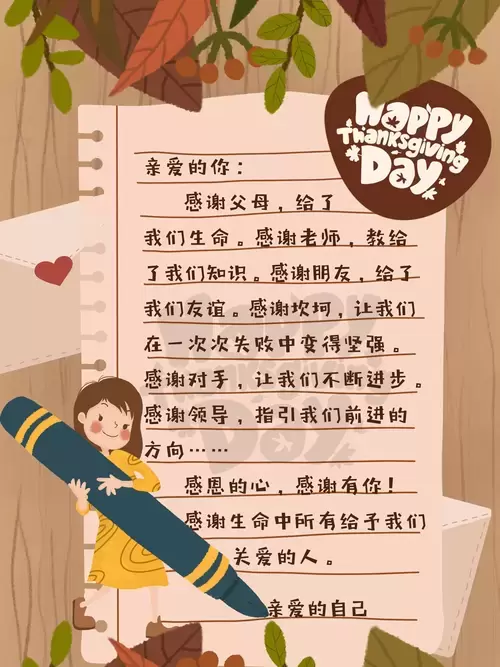 Happy
Thanksgiving
Day
亲爱的你：
感谢父母，给了
我们生命。感谢老师，教给
了我们知识。感谢朋友，给了
我们友谊。感谢坎坷，让我们
在一次次失败中变得坚强。
感谢对手，让我们不断进步。
感谢领导，指引我们前进的
方向……
感恩的心，感谢有你！
感谢生命中所有给予我们
关爱的人。
亲爱的自己
Happy
Thanksgiving
Day